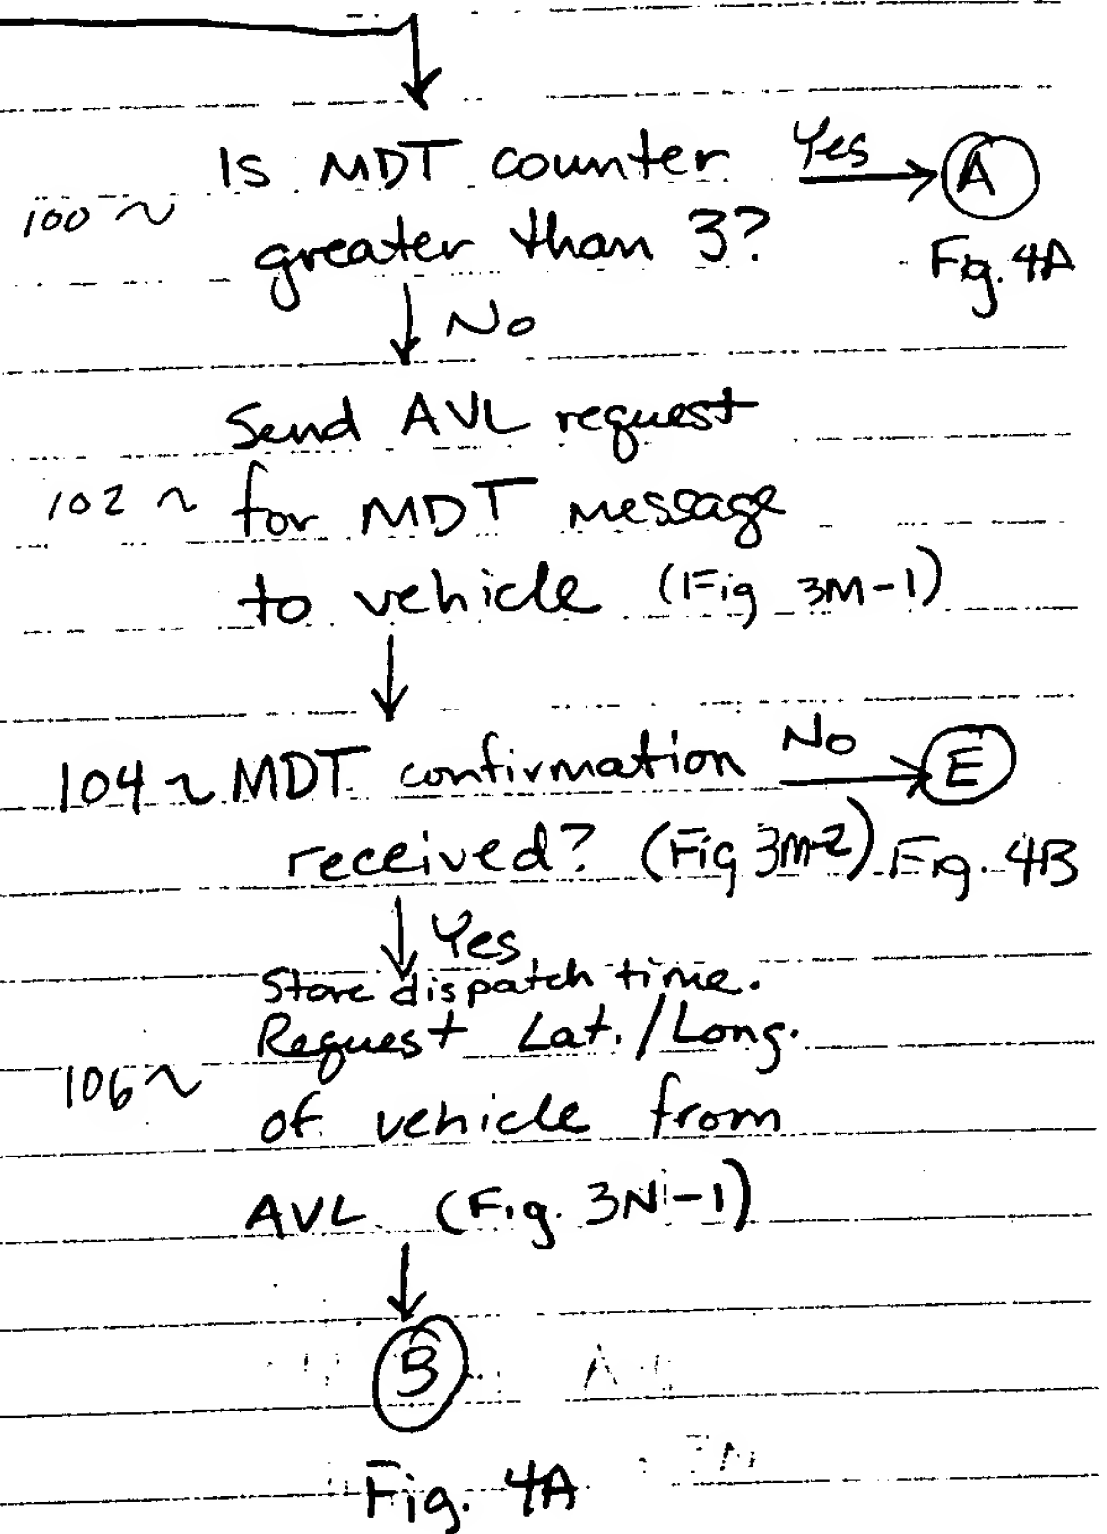 Is MDT counter Yes A
100 ~ greater than 3? Fig. 4A
No
Send AVL request
102 ~ for MDT message
to vehicle (Fig 3M-1)
104 ~ MDT confirmation No E
received? (Fig 3M-2) Fig. 4B
Yes
Store dispatch time.
Request Lat./Long.
106 ~ of vehicle from
AVL (Fig. 3N-1)
B
Fig. 4A